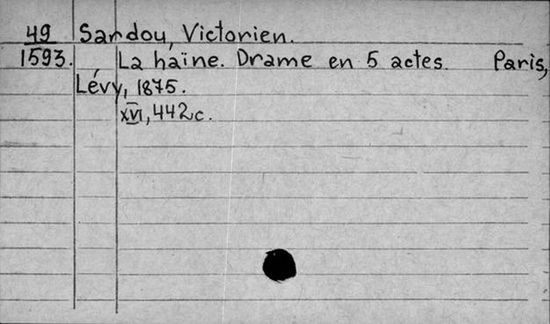 49 Sardou, Victorien.
1593. La haïne. Drame en 5 actes. Paris,
Lévy, 1875.
XVI, 442c.